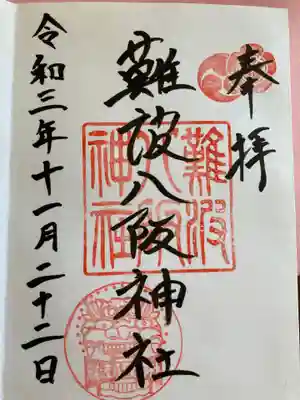 奉拝
難波八阪神社
難波八阪神社
令和三年十一月二十二日